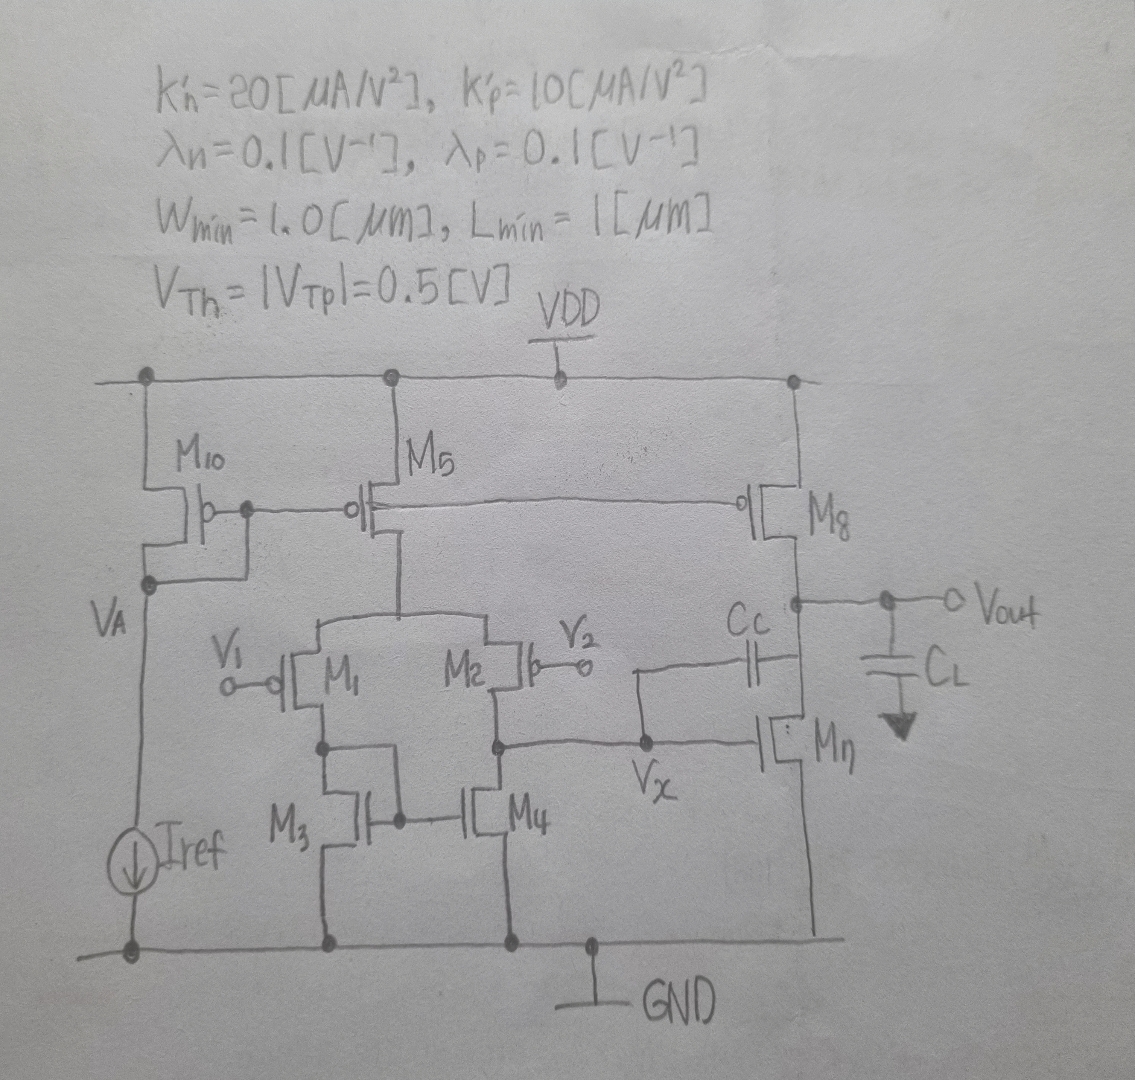 k'n=20[μA/V²], k'p=10[μA/V²]
λn=0.1[V⁻¹], λp=0.1[V⁻¹]
Wmin=1.0[μm], Lmin=1[μm]
VTh=|VTp|=0.5[V]
VDD
M10
M5
M8
VA
Vout
V1
M1
M2
V2
Cc
CL
Vx
M7
M3
M4
Iref
GND